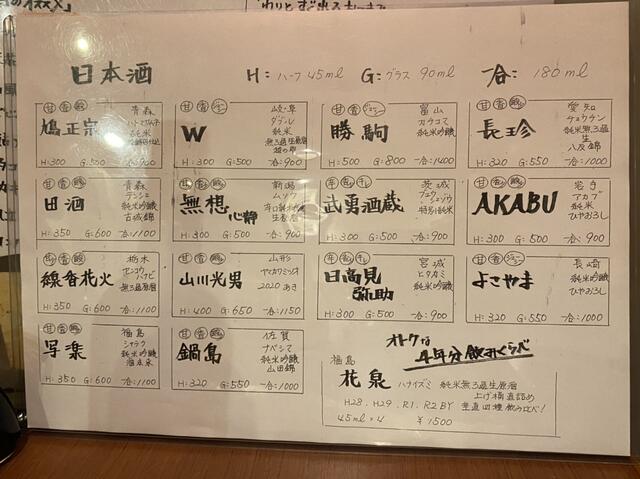 日本酒 H:ハーフ45ml G:グラス90ml 一合:180ml
青森
鳩正宗
ハトマサムネ
純米
H:300 G:500 一合:900
岐阜
W
ダブル
純米
無ろ過生原酒
H:300 G:500 一合:900
富山
勝駒
カチコマ
純米吟醸
H:500 G:800 一合:1400
愛知
長珍
チョウチン
純米無ろ過
生
八反錦
H:320 G:550 一合:1000
青森
田酒
デンシュ
純米吟醸
古城錦
H:350 G:600 一合:1100
新潟
無想
心粋
ムソウ
生原酒
H:300 G:500 一合:900
茨城
武勇酒蔵
ブユウ
シュゾウ
特別純米
H:300 G:500 一合:900
岩手
AKABU
アカブ
純米
ひやおろし
H:300 G:500 一合:900
栃木
線香花火
センコウ
ハナビ
無ろ過原酒
H:350 G:600 一合:1100
山形
山川光男
ヤマカワミツオ
2020 あき
H:400 G:650 一合:1150
宮城
日高見
弥助
ヒタカミ
純米吟醸
H:300 G:500 一合:900
長崎
よこやま
純米吟醸
ひやおろし
H:320 G:550 一合:1000
福島
写楽
シャラク
純米吟醸
酒未来
H:350 G:600 一合:1100
佐賀
鍋島
ナベシマ
純米吟醸
山田錦
H:320 G:550 一合:1000
オトクな
4年分飲みくらべ
福島
花泉 ハナイズミ 純米無ろ過生原酒
上げ桶直詰め
H28.H29.R1.R2BY 垂直四種飲み比べ!
45ml×4 ¥1500